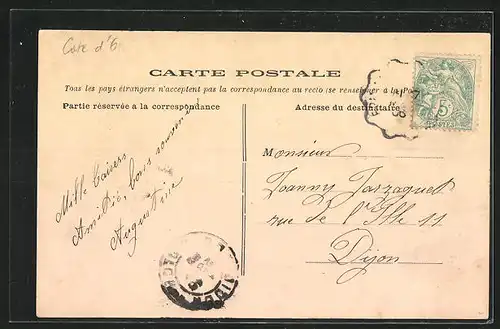 Cote d'o
CARTE POSTALE
Tous les pays étrangers n'acceptent pas la correspondance au recto (se renseigner à la Po
Partie réservée à la correspondance
Adresse du destinataire
Mille baisers
Amitié, bons souvenirs
Augustine
Monsieur
Joanny Jarzaguet
rue de l'Ille 11
Dijon
5
DIJON